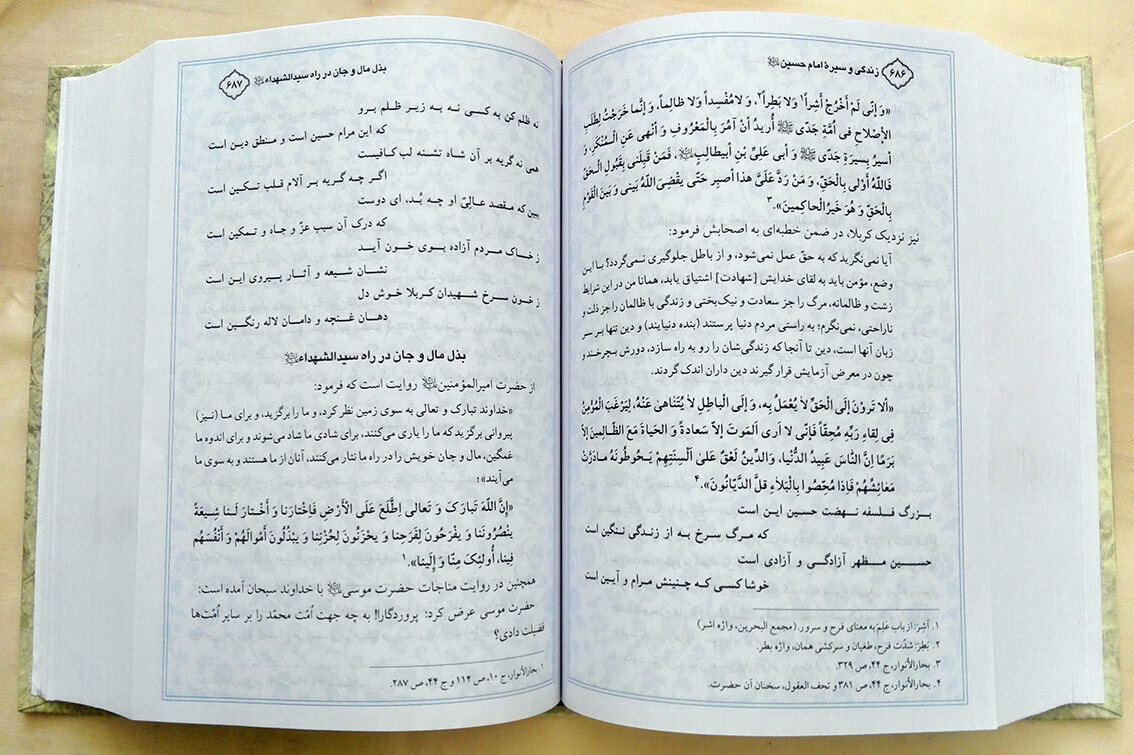 ۶۸۶ زندگی و سیرهٔ امام حسین ﷺ
«وَ إنّی لَمْ أَخْرُجْ أَشِراً۱ وَلا بَطِراً۲، وَ لامُفْسِداً وَلا ظالِماً، وَ إنَّما خَرَجْتُ لِطَلَبِ
الإصْلاحِ فی اُمَّةِ جَدّی ﷺ أُریدُ أنْ آمُرَ بِالْمَعْرُوفِ وَ أنْهی عَنِ الْـمُنْکَرِ، وَ
أسیرُ بِسیرَةِ جَدّی ﷺ وَ أبی عَلِیِّ بْنِ أبیطالِبٍ ﷺ، فَمَنْ قَبِلَنی بِقَبُولِ الْـحَقِّ
فَاللّٰهُ أَوْلی بِالْحَقِّ، وَ مَنْ رَدَّ عَلَیَّ هذا أَصْبِرُ حَتّی یَقْضِیَ اللّٰهُ بَیْنی وَ بَیْنَ الْقَوْمِ
بِالْحَقِّ وَ هُوَ خَیْرُ الْحاکِمینَ».۳
نیز نزدیک کربلا، در ضمن خطبه‌ای به اصحابش فرمود:
آیا نمی‌نگرید که به حقّ عمل نمی‌شود، و از باطل جلوگیری نمی‌گردد؟ بـا این
وضع، مؤمن باید به لقای خدایش [شهادت] اشتیاق یابد، همانا من در این شرایط
زشت و ظالمانه، مرگ را جز سعادت و نیک‌بختی و زندگی با ظالمان را جز ذلت و
ناراحتی، نمی‌نگرم؛ به راستی مردم دنیا پرستند (بنده دنیایند) و دین تنها بـر سر
زبان آنها است، دین تا آنجا که زندگی‌شان را رو به راه سازد، دورش بچرخند و
چون در معرض آزمایش قرار گیرند دین داران اندک گردند.
«ألا تَرَوْنَ إلَی الْحَقِّ لاٰ یُعْمَلُ بِه، وَ إلَی الْباطِلِ لاٰ یُتَناهیٰ عَنْهُ، لِیَرْغَبَ الْمُؤمِنُ
فِی لِقاءِ رَبِّهِ مُحِقّاً فَإنّی لا اَری اَلمَوتَ إلاّ سَعادةً وَ الحَیاةَ مَعَ الظّـالِمینَ إلاّ
بَرَمًا إنَّ النّاسَ عَبیدُ الدُّنْیا، وَالدّینُ لَعْقٌ عَلیٰ ألْسِنَتِهِمْ یَـحُوطُونَهُ مـادَرَّتْ
مَعائِشُهُمْ فَإذا مُحِّصُوا بِالْبَلاٰءِ قَلَّ الدَّیّانُونَ».۴
بـزرگ فلسفه نهضت حسین این است
که مـرگ سرخ به از زنـدگی ننگین است
حسـین مظهر آزادگـی و آزادی است
خوشا کسی کـه چـنینش مرام و آیـین است
۱. أَشِرَ: از باب عَلِمَ به معنای فرح و سرور. (مجمع البحرین، واژه اشر)
۲. بَطِرَ: شدّت فرح، طغیان و سرکشی همان، واژه بطر.
۳. بحارالأنوار، ج ۴۴، ص ۳۲۹.
۴. بحارالأنوار، ج ۴۴، ص ۳۸۱ و تحف العقول، سخنان آن حضرت.
بذل مال و جان در راه سیدالشهداء ﷺ ۶۸۷
نه ظلم کن به کسی نه به زیـر ظلم برو
که این مرام حسین است و مـنطق دین است
همی نه گریه بر آن شاه تشنه لب کـافیست
اگر چـه گریه بـر آلام قـلب تسکـین است
ببین که مـقصد عالِیّ او چه بُد، ای دوست
که درک آن سبب عزّ و جاه و تـمکین است
ز خـاک مـردم آزاده بـوی خـون آیـد
نشـان شـیعه و آثـار پـیروی این است
ز خون سرخ شهیدان کـربلا خوش دل
دهـان غـنچه و دامـان لاله رنگـین است
بذل مال و جان در راه سیدالشهداء ﷺ
از حضرت امیرالمؤمنین ﷺ روایت است که فرمود:
«خداوند تبارک و تعالی به سوی زمین نظر کرد، و ما را برگزید، و برای مـا (نـیز)
پیروانی برگزید که ما را یاری می‌کنند، برای شادی ما شاد می‌شوند و برای اندوه ما
غمگین، مال و جان خویش را در راه ما نثار می‌کنند، آنان از ما هستند و به سوی ما
می‌آیند»؛
«إنَّ اللّٰهَ تَبارَکَ وَ تَعالی اِطَّلَعَ عَلَی الْأَرْضِ فَاخْتارَنا وَ أَخْـتارَ لَـنا شیعَةً
یَنْصُرُونَنا وَ یَفْرَحُونَ لِفَرَحِنا وَ یَحْزَنُونَ لِحُزْنِنا وَ یَـبْذُلُونَ أَمْوالَهُمْ وَ أَنْفُسَهُمْ
فینا، اُولئِکَ مِنّا وَ إلَینا».۱
همچنین در روایت مناجات حضرت موسی ﷺ با خداوند سبحان آمده است:
حضرت موسی عرض کرد: پروردگارا! به چه جهت اُمّت محمّد را بر سایر اُمّت‌ها
فضیلت دادی؟
۱. بحارالأنوار، ج ۱۰، ص ۱۱۴ و ج ۴۴، ص ۲۸۷.